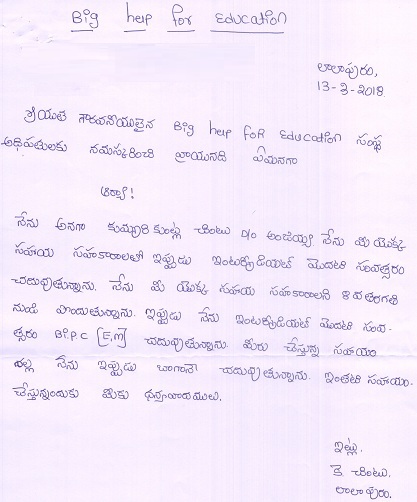 Big help for Education
లాలాపురం,
13-3-2018.
శ్రీయుత గౌరవనీయులైన Big help FOR Education సంస్థ
అధిపతులకు నమస్కరించి వ్రాయునది ఏమనగా
ఆర్యా!
నేను అనగా కుమ్మరికుంట్ల చింటు D/O అంజయ్య నేను మీ యొక్క
సహాయ సహకారాలతో ఇప్పుడు ఇంటర్మీడియట్ మొదటి సంవత్సరం
చదువుతున్నాను. నేను మీ యొక్క సహాయ సహకారాలని 8వ తరగతి
నుండి పొందుతున్నాను. ఇప్పుడు నేను ఇంటర్మీడియట్ మొదటి సంవ-
త్సరం Bi.P.C [E.M] చదువుతున్నాను. మీరు చేస్తున్న సహాయం
వల్ల నేను ఇప్పుడు బాగానే చదువుతున్నాను. ఇంతటి సహాయం.
చేస్తున్నందుకు మీకు ధన్యవాదములు.
ఇట్లు.
కె చింటు.
లాలాపురం.